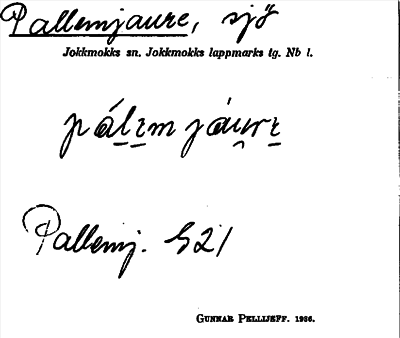 Pallemjaure, sjö
Jokkmokks sn. Jokkmokks lappmarks tg. Nb l.
pálεm jáu̯rε
Pallemj. S21
GUNNAR PELLIJEFF. 1936.